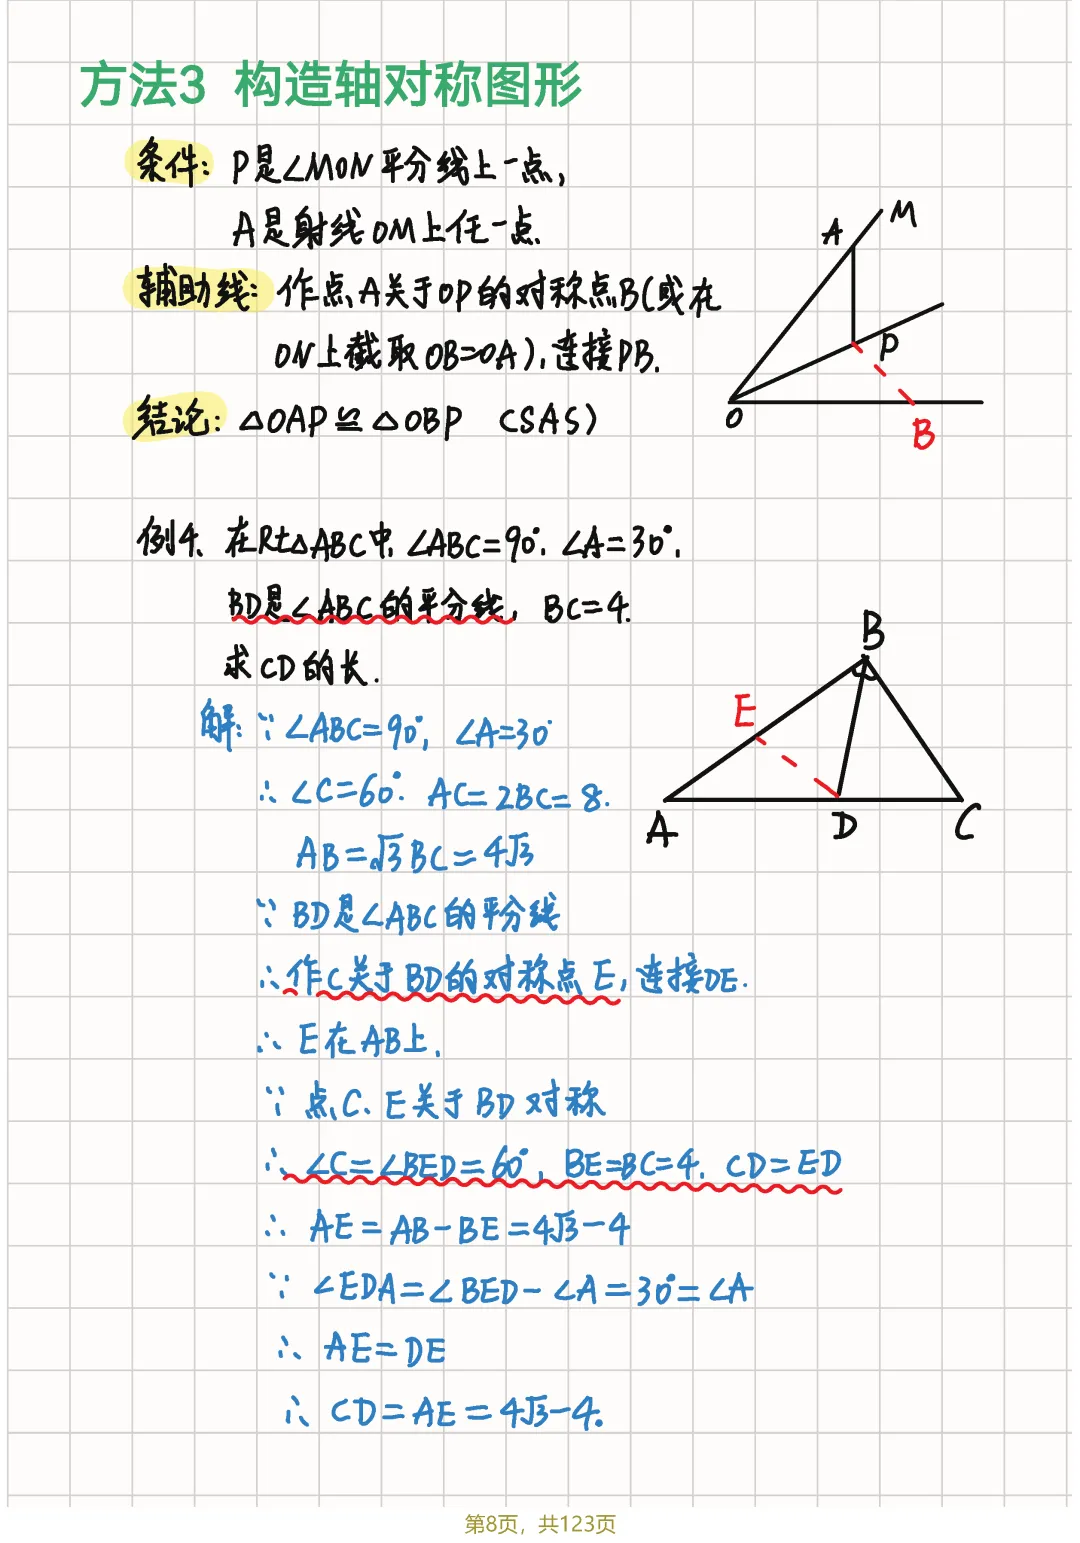 方法3 构造轴对称图形
条件: P是∠MON平分线上一点,
A是射线OM上任一点.
辅助线: 作点A关于OP的对称点B(或在
ON上截取OB=OA),连接PB.
结论: △OAP≌△OBP (SAS)
A
M
P
O
B
例4、在Rt△ABC中,∠ABC=90°,∠A=30°,
BD是∠ABC的平分线, BC=4.
求CD的长.
解: ∵∠ABC=90°, ∠A=30°
∴∠C=60°. AC=2BC=8.
AB=√3BC=4√3
∵ BD是∠ABC的平分线
∴作C关于BD的对称点E,连接DE.
∴ E在AB上.
∵ 点C、E关于BD对称
∴ ∠C=∠BED=60°, BE=BC=4. CD=ED
∴ AE=AB-BE=4√3-4
∵ ∠EDA=∠BED-∠A=30°=∠A
∴ AE=DE
∴ CD=AE=4√3-4.
B
E
A
D
C
第8页，共123页